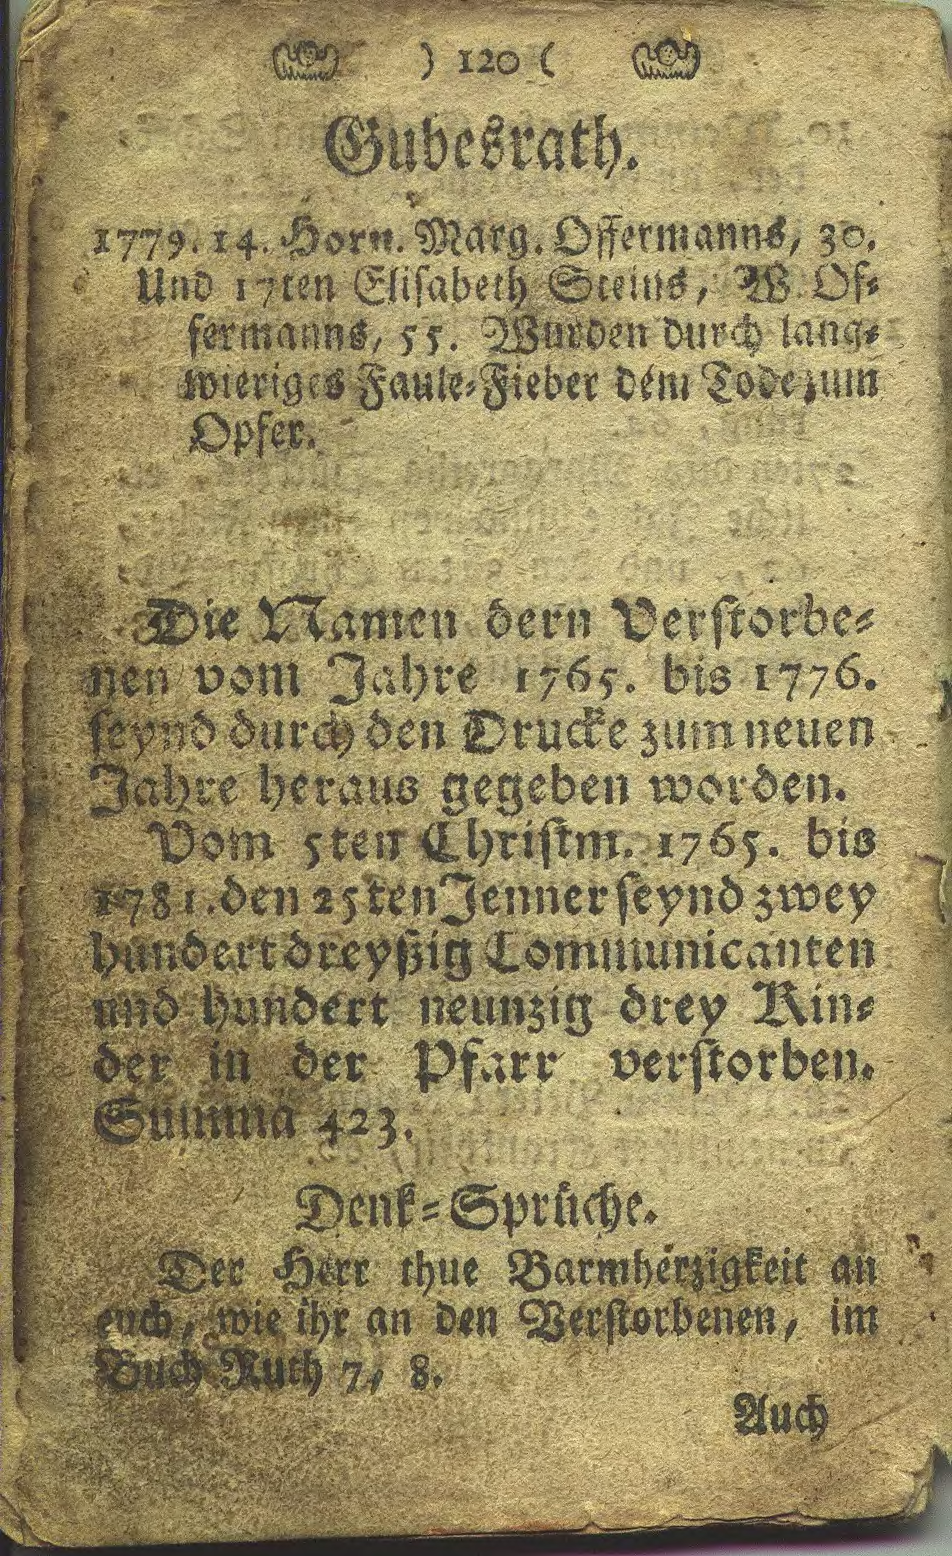 ) 120 (
Gubesrath.
1779. 14. Horn. Marg. Offermanns, 30.
Und 17ten Elisabeth Steins, W. Of⸗
fermanns, 55. Wurden durch lang⸗
wieriges Faule⸗Fieber dem Tode zum
Opfer.
Die Namen dern Verstorbe⸗
nen vom Jahre 1765. bis 1776.
seynd durch den Drucke zum neuen
Jahre heraus gegeben worden.
Vom 5ten Christm. 1765. bis
1781. den 25ten Jenner seynd zwey
hundert dreyßig Communicanten
und hundert neunzig drey Kin⸗
der in der Pfarr verstorben.
Summa 423.
Denk⸗Sprüche.
Der Herr thue Barmherzigkeit an
euch, wie ihr an den Verstorbenen, im
Buch Ruth 7, 8.
Auch